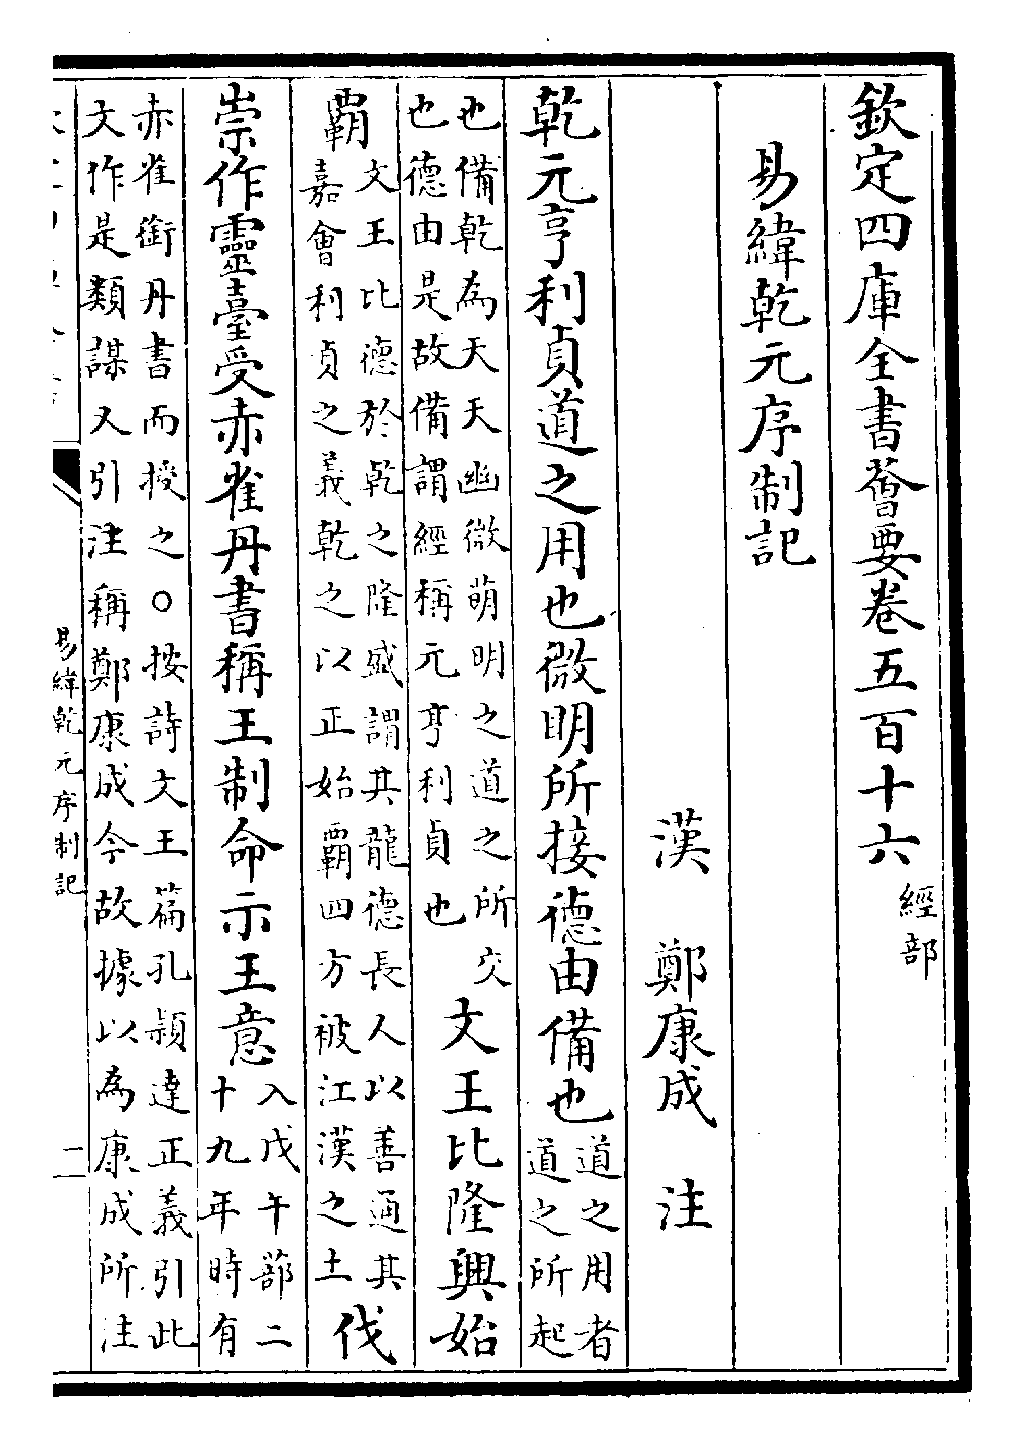 欽定四庫全書薈要卷五百十六 經部
易緯乾元序制記
漢 鄭康成 注
乾元亨利貞道之用也微明所接德由備也道之用者道之所起
也備乾為天天幽微萌明之道之所交也德由是故備謂經稱元亨利貞也文王比隆興始
霸文王比德於乾之隆盛謂其龍德長人以善通其嘉會利貞之義乾之以正始霸四方被江漢之土伐
崇作靈臺受赤雀丹書稱王制命示王意入戊午蔀二十九年時有
赤雀銜丹書而授之○按詩文王篇孔穎達正義引此文作是類謀又引注稱鄭康成今故據以為康成所注
易緯乾元序制記
一